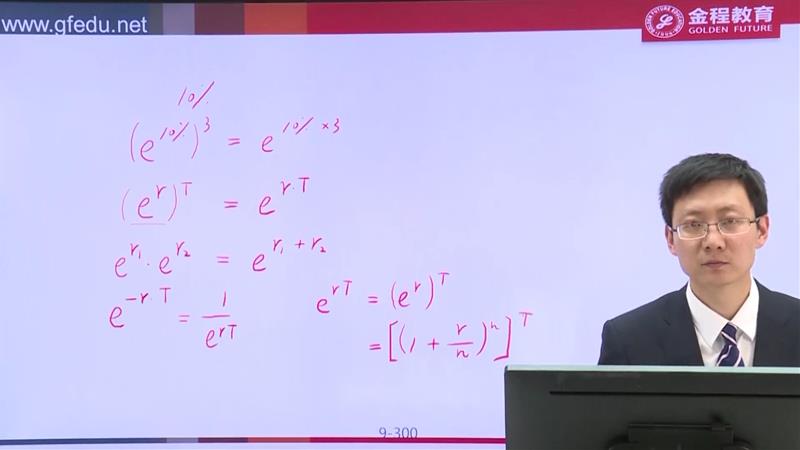 www.gfedu.net
金程教育
GOLDEN FUTURE
10%
(e^{10%})^3 = e^{10% × 3}
(e^r)^T = e^{r·T}
e^{r₁} · e^{r₂} = e^{r₁ + r₂}
e^{-r·T} = 1/e^{rT}
e^{rT} = (e^r)^T
= [(1 + r/n)^n]^T
9-300